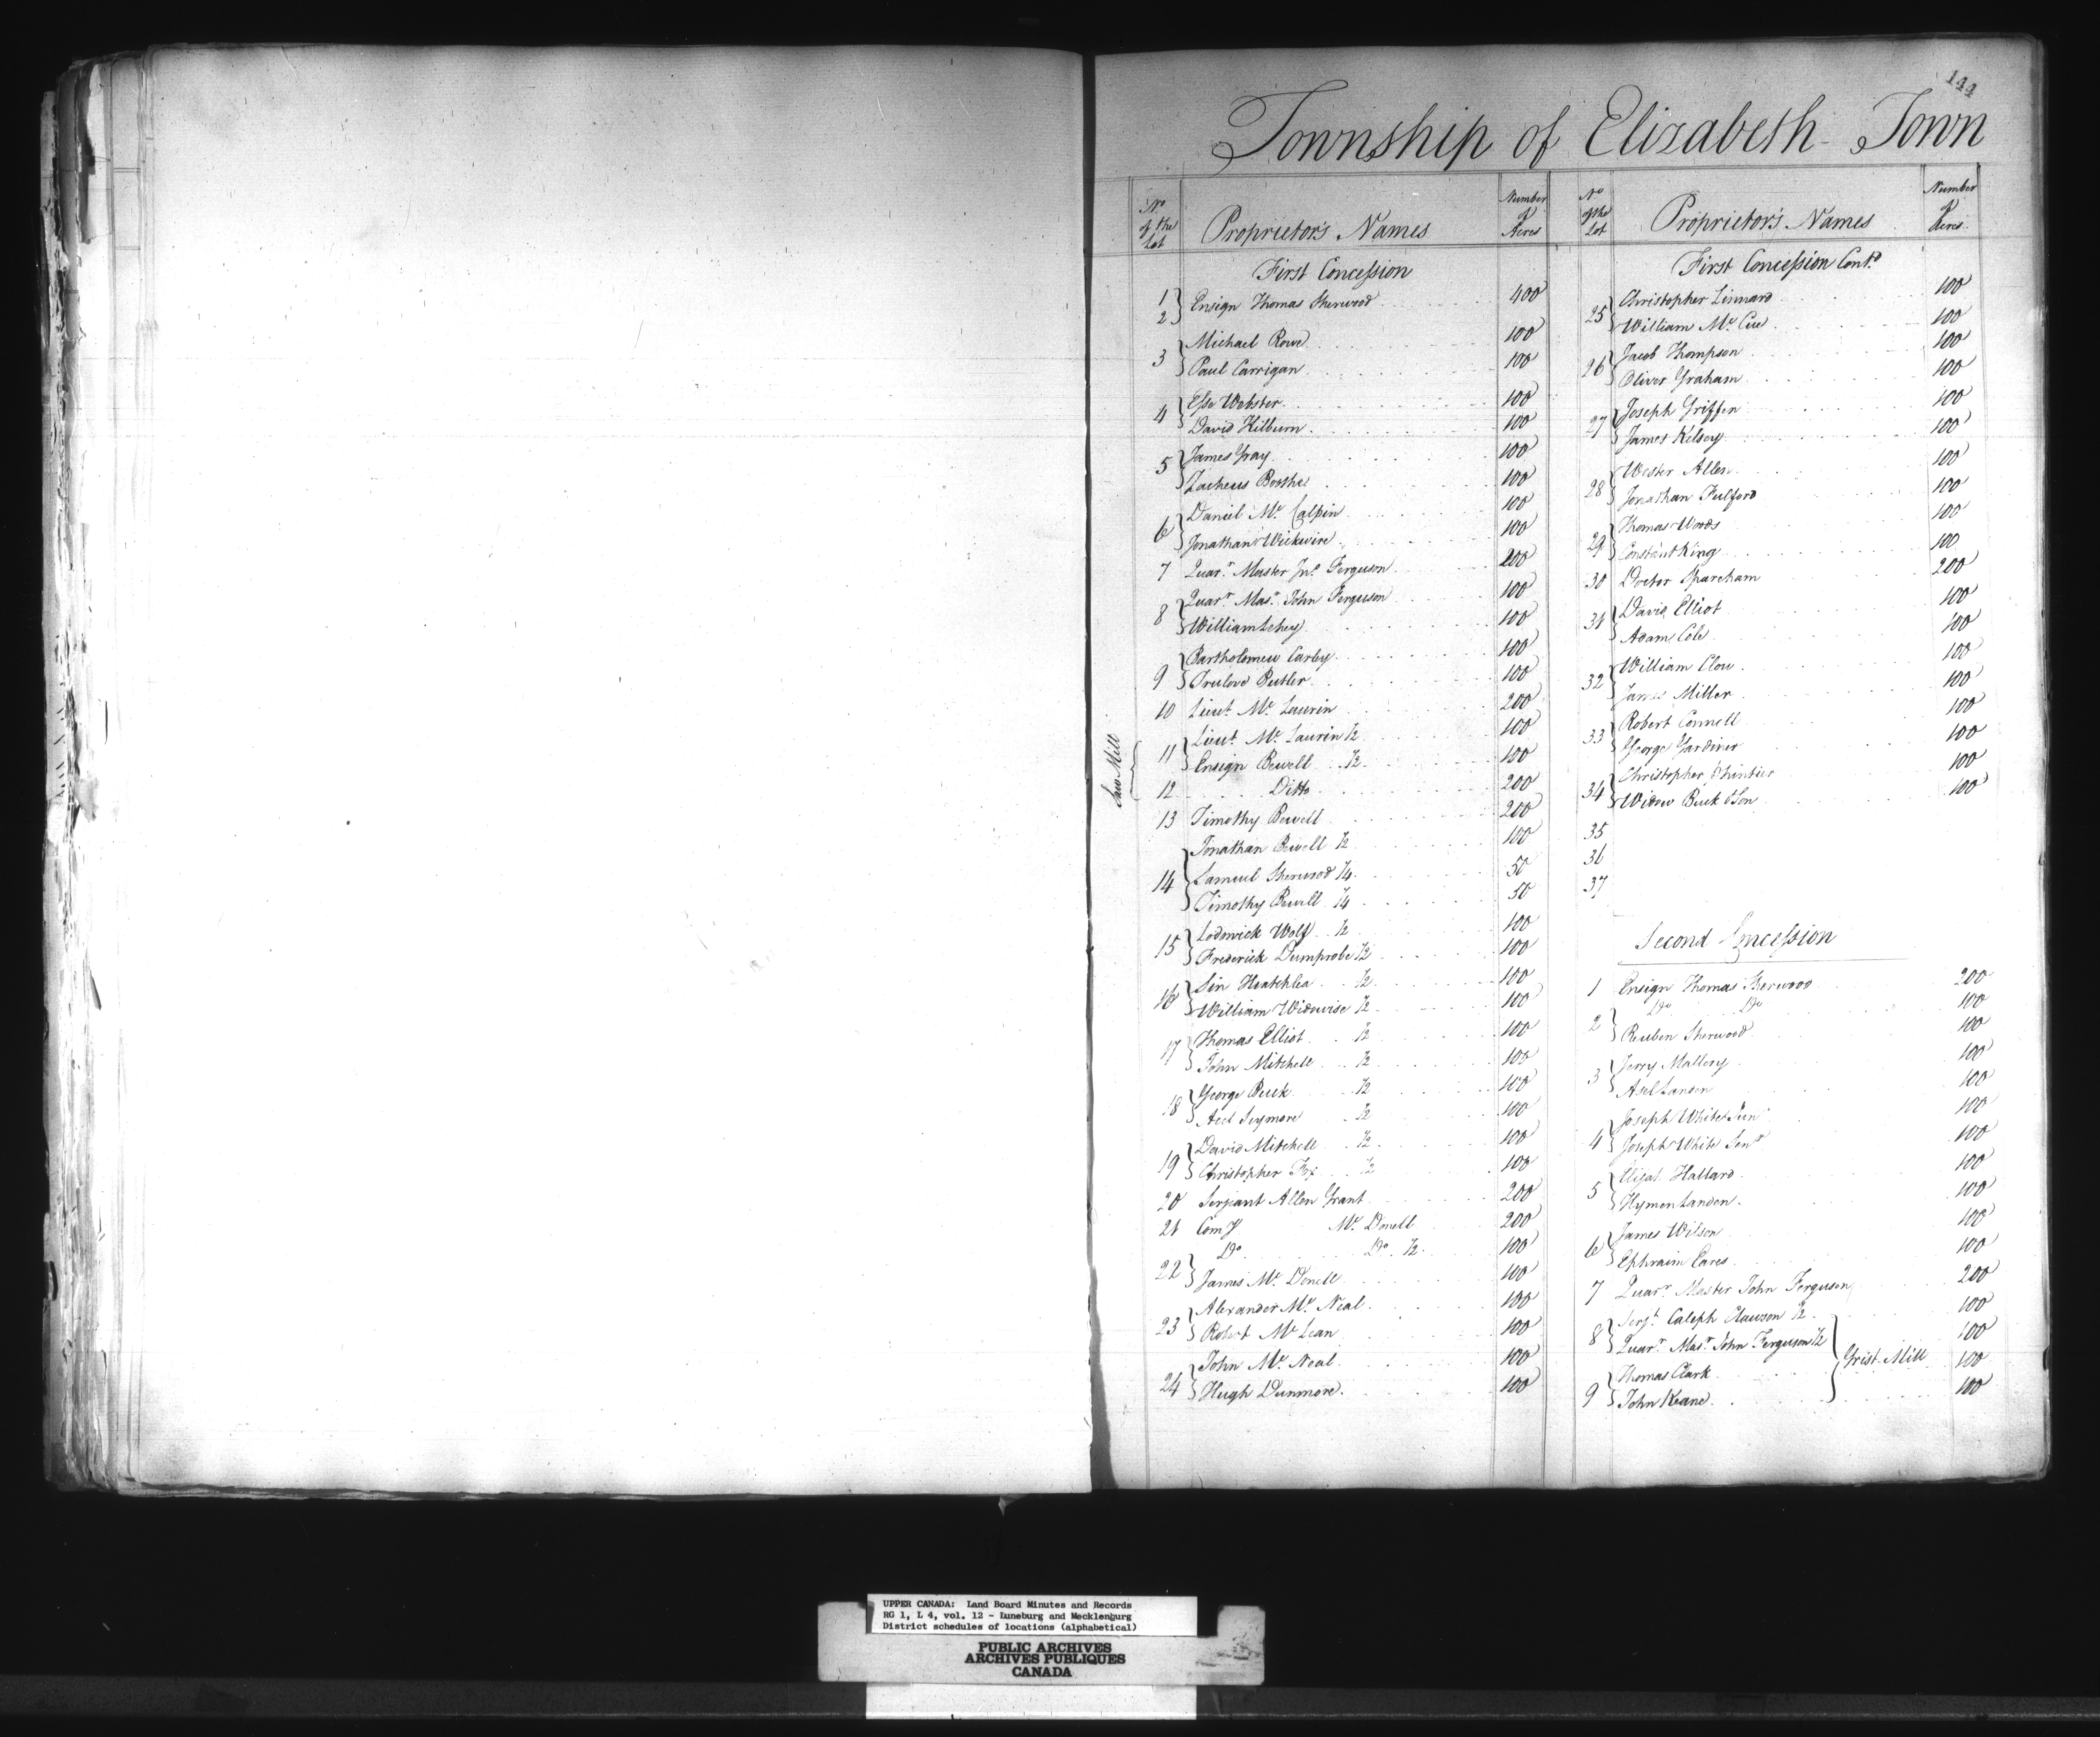 144
Township of Elizabeth-Town
No of the Lot
Proprietor's Names
Number of Acres
First Concession
1 2 } Ensign Thomas Sherwood 400
3 { Michael Rowe 100
Paul Carrigan 100
4 { Esse Webster 100
David Kilburn 100
5 { James Gray 100
Zacheus 100
6 { Daniel Mc Calpin 100
Jonathan Wickwire 100
7 Quarr Master Jno Ferguson 200
8 { Quarr Masr John Ferguson 100
William Lehey 100
9 { Bartholomew Carley 100
Trulove Butler 100
10 Lieut Mc Laurin 200
Saw Mill
11 { Lieut Mc Laurin ½ 100
Ensign Bewell ½ 100
12 Ditto 200
13 Timothy Bewell 200
14 { Jonathan Bewell ½ 100
Samuel Sherwood ¼ 50
Timothy Bewell ¼ 50
15 { Lodowick Wolf ½ 100
Frederick Dumprobe ½ 100
16 { ½ 100
William Widowise ½ 100
17 { Thomas Elliot ½ 100
John Mitchell ½ 100
18 { George Buck ½ 100
Seymore ½ 100
19 { David Mitchell ½ 100
Christopher ½ 100
20 Serjeant Allen Grant 200
21 Mc Donell 200
22 { Do Do ½ 100
James Mc Donell 100
23 { Alexander Mc Neal 100
Robert Mc Lean 100
24 { John Mc Neal 100
Hugh Dunmore 100
No of the Lot
Proprietor's Names
Number of Acres
First Concession Contd
25 { Christopher Linnard 100
William Mc Cue 100
26 { Jacob Thompson 100
Oliver Graham 100
27 { Joseph Griffen 100
James Kelsey 100
28 { Wester Allen 100
Jonathan Fulford 100
29 { Thomas Woods 100
Constant King 100
30 Doctor Sparcham 200
31 { David Elliot 100
Adam Cole 100
32 { William Clow 100
James Miller 100
33 { Robert Connell 100
George Gardiner 100
34 { Christopher 100
Widow Buck & Son 100
35
36
37
Second Concession
1 Ensign Thomas Sherwood 200
2 { Do Do 100
Reuben Sherwood 100
3 { Jerry Mallery 100
Asel Landen 100
4 { Joseph White Junr 100
Joseph White Senr 100
5 { Elijah Hallard 100
Hymen Landen 100
6 { James Wilson 100
Ephraim Eares 100
7 Quarr Master John Ferguson 200
8 { Serjt Caleph Clawson ½ 100
Quarr Masr John Ferguson ½ 100
Grist Mill
9 { Thomas Clark 100
John Keane 100
UPPER CANADA: Land Board Minutes and Records
RG 1, L 4, vol. 12 - Luneburg and Mecklenburg
District schedules of locations (alphabetical)
PUBLIC ARCHIVES
ARCHIVES PUBLIQUES
CANADA